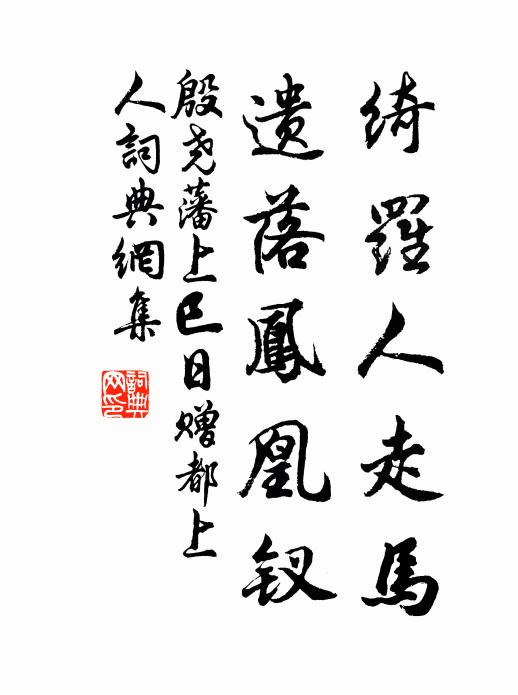 綺羅人走馬
遺落鳳凰钗
殷尧藩上巳日赠都上
人詞典網集
詞典网印